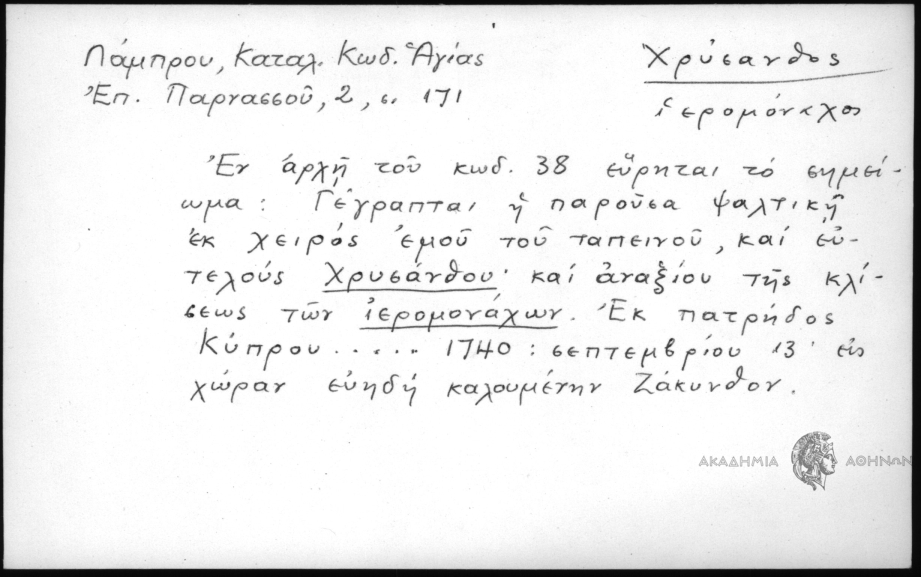 Λάμπρου, Καταλ. Κωδ. Ἁγίας
Ἐπ. Παρνασσοῦ, 2, σ. 171
Χρύσανθος
ἱερομόναχος
Ἐν ἀρχῇ τοῦ κωδ. 38 εὕρηται τό σημεί-
ωμα: Γέγραπται ἡ παροῦσα ψαλτική
ἐκ χειρός ἐμοῦ τοῦ ταπεινοῦ, καί εὐ-
τελούς Χρυσάνθου· καί ἀναξίου τῆς κλί-
σεως τῶν ἱερομονάχων. Ἐκ πατρήδος
Κύπρου ..... 1740: σεπτεμβρίου 13· εἰς
χώραν εὐηδή καλουμένην Ζάκυνθον.
ΑΚΑΔΗΜΙΑ ΑΘΗΝΩΝ